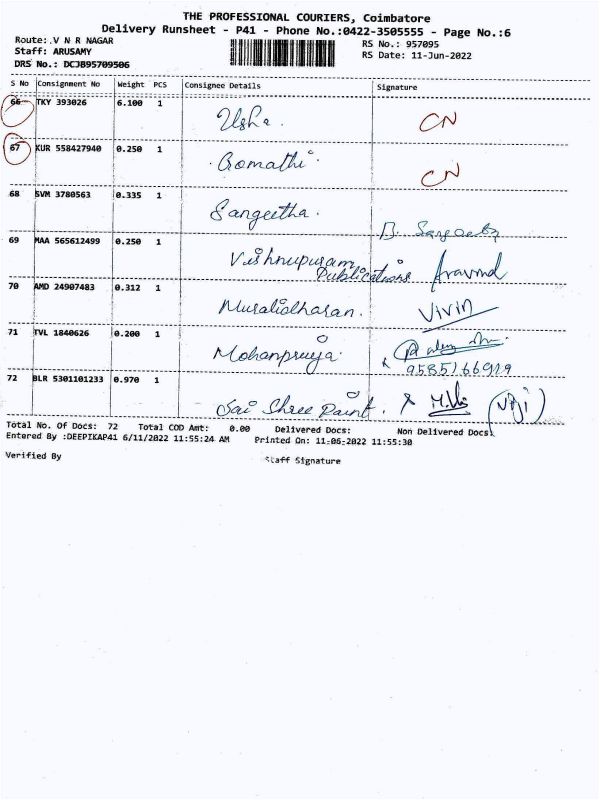 THE PROFESSIONAL COURIERS, Coimbatore
Delivery Runsheet - P41 - Phone No.:0422-3505555 - Page No.:6
Route:.V N R NAGAR RS No.: 957095
Staff: ARUSAMY RS Date: 11-Jun-2022
DRS No.: DCJB95709506
S No Consignment No Weight PCS Consignee Details Signature
66 TKY 393026 6.100 1 Usha. CN
67 KUR 558427940 0.250 1 Gomathi. CN
68 SVM 3780563 0.335 1 Sangeetha. B. Sangeetha
69 MAA 565612499 0.250 1 Vishnupuram Publications Aravind
70 AMD 24907483 0.312 1 Muralidharan. Vivin
71 TVL 1840626 0.200 1 Mohanpriya
9585166919
72 BLR 5301101233 0.970 1 Sai Shree Paint.
Total No. Of Docs: 72 Total COD Amt: 0.00 Delivered Docs: Non Delivered Docs:
Entered By :DEEPIKAP41 6/11/2022 11:55:24 AM Printed On: 11-06-2022 11:55:30
Verified By Staff Signature